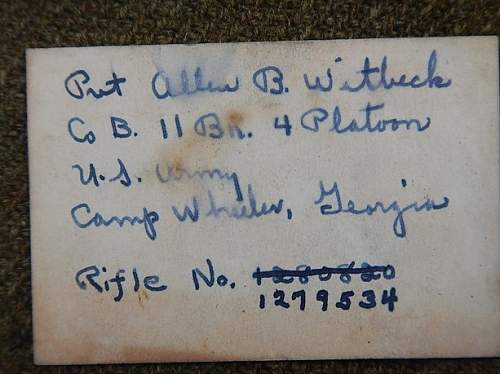 Pvt Allen B. Witbeck
Co B. 11 Bn. 4 Platoon
U.S. Army
Camp Wheeler, Georgia
Rifle No. 1280820
1279534